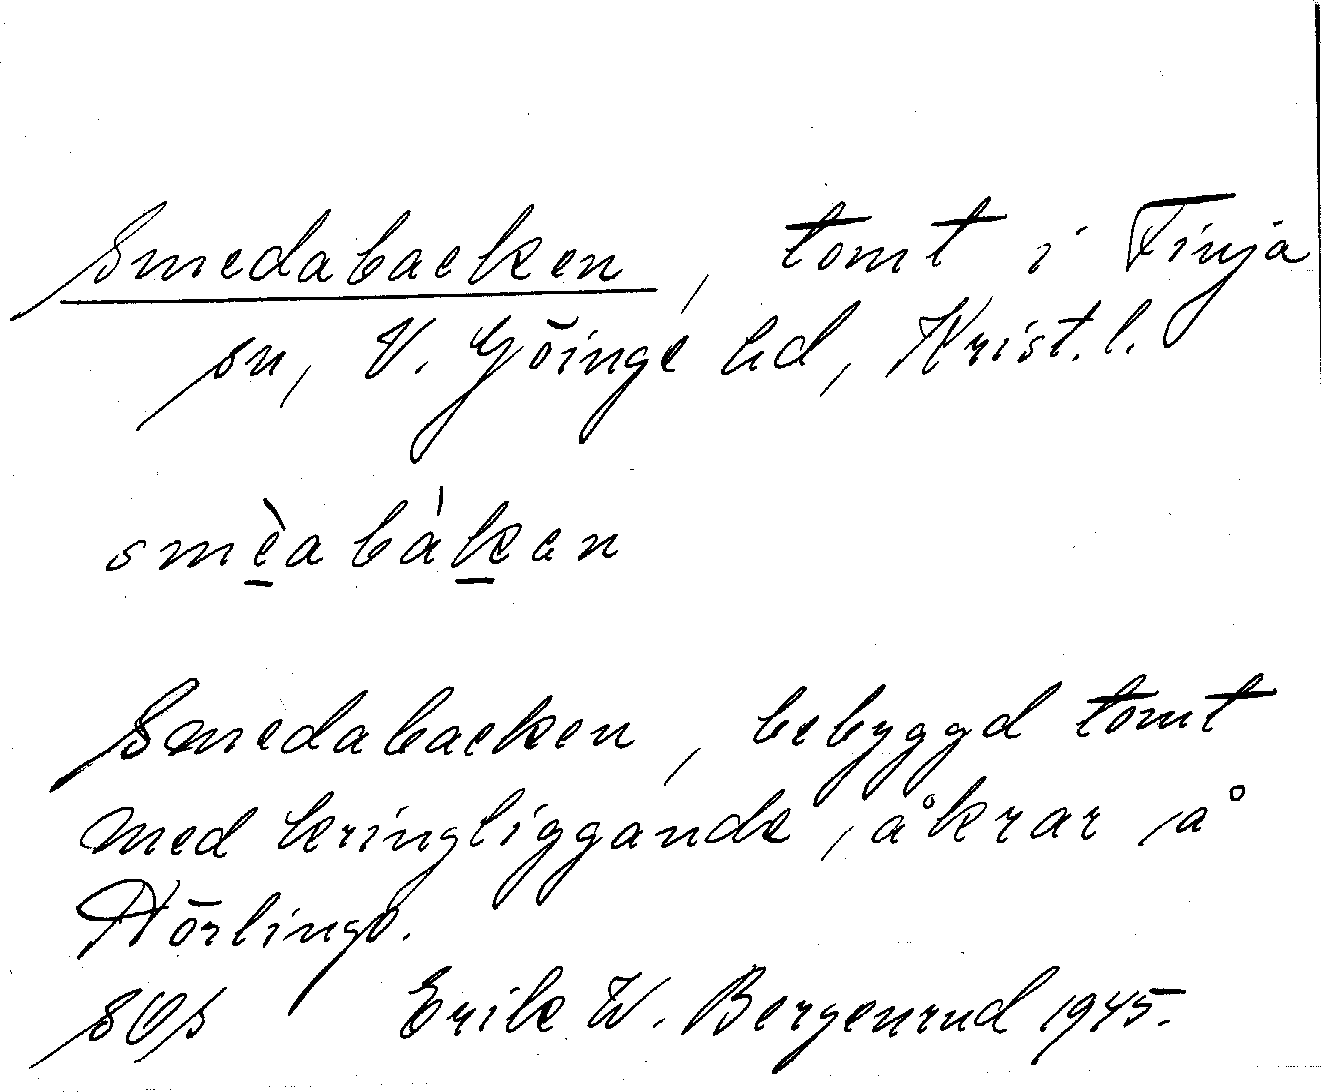 Smedabacken, tomt i Finja
sn, V. Göinge hd, Krist. l.
smèabàkan
Smedabacken, bebyggd tomt
med kringliggande åkrar, å
Hörlinge.
Erik W. Bergenrud 1945.